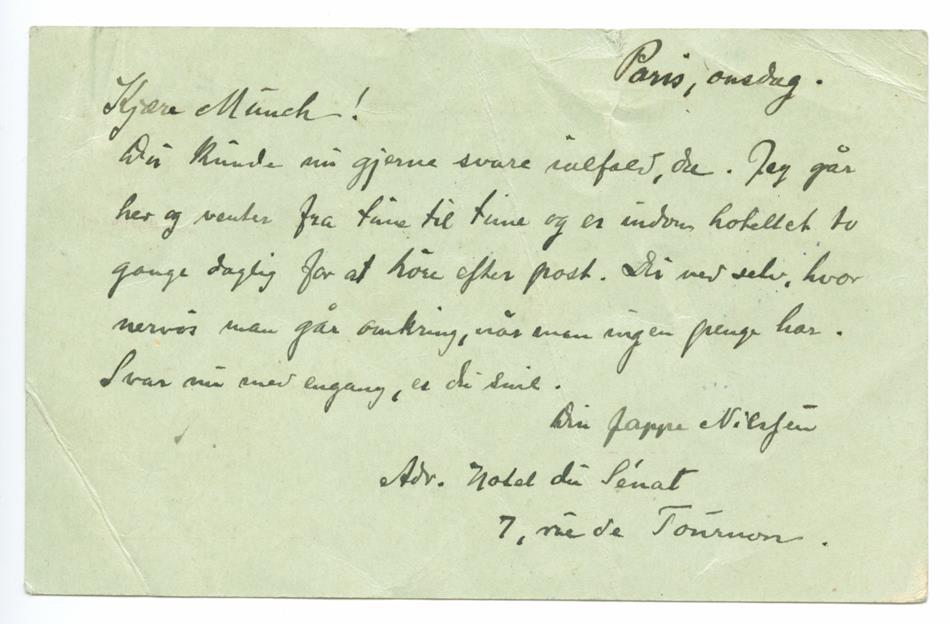 Paris, onsdag.
Kjære Munch!
Du kunde nu gjerne svare ialfald, du. Jeg går
her og venter fra time til time og er indom hotellet to
gange daglig for at höre efter post. Du ved selv, hvor
nervös man går omkring, når man ingen penge har.
Svar nu med engang, er du snil.
Din Jappe Nilssen
Adr. Hotel du Sénat
7, rue de Tournon.